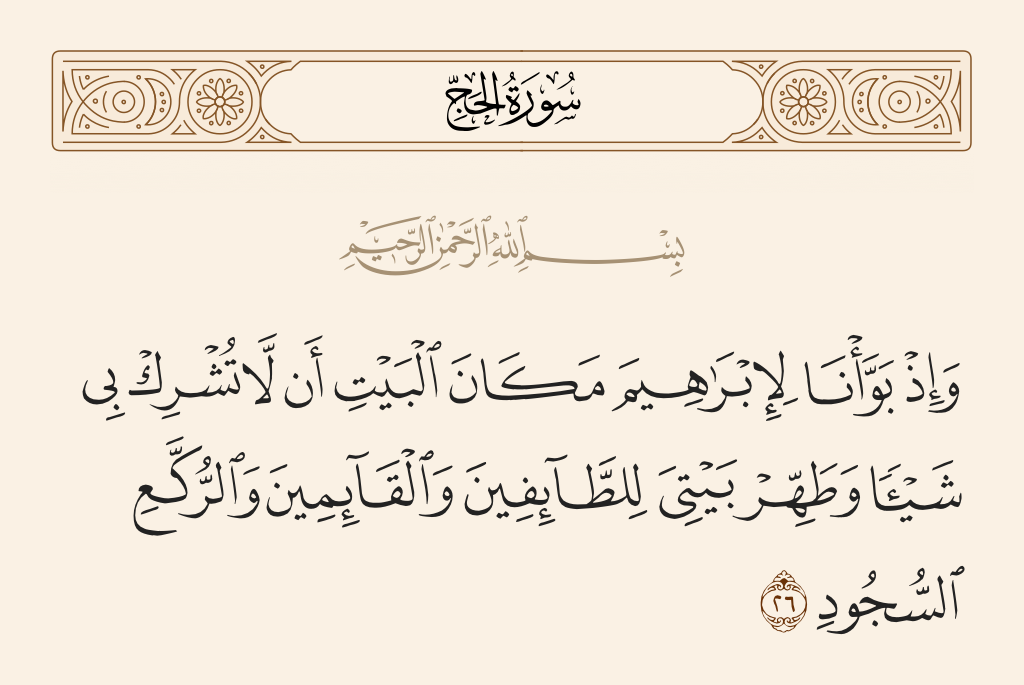 سُورَةُ الْحَجِّ
بِسْمِ ٱللَّهِ ٱلرَّحْمَٰنِ ٱلرَّحِيمِ
وَإِذْ بَوَّأْنَا لِإِبْرَٰهِيمَ مَكَانَ ٱلْبَيْتِ أَن لَّا تُشْرِكْ بِى
شَيْـًٔا وَطَهِّرْ بَيْتِىَ لِلطَّآئِفِينَ وَٱلْقَآئِمِينَ وَٱلرُّكَّعِ
ٱلسُّجُودِ ٢٦